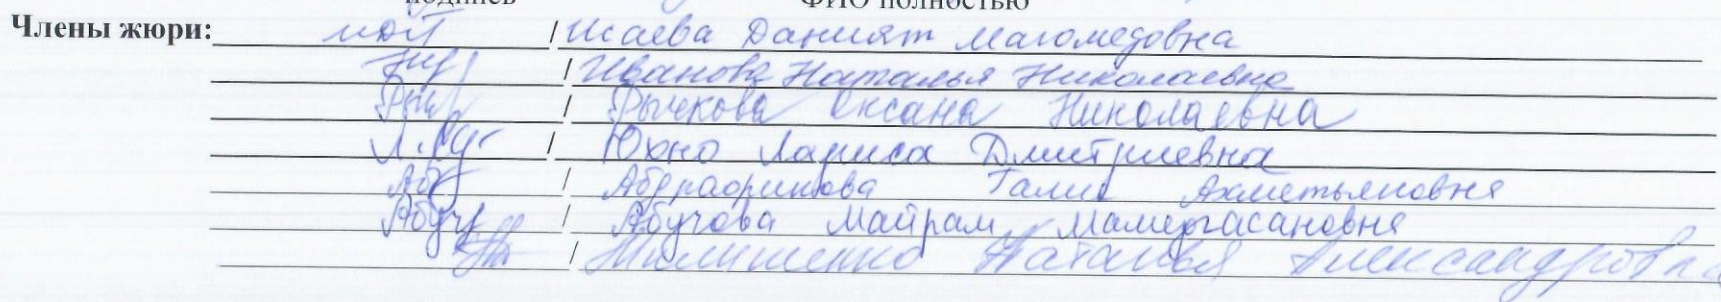 подпись ФИО полностью
Члены жюри: / Исаева Даният Магомедовна
/ Иванова Наталья Николаевна
/ Рычкова Оксана Николаевна
/ Юхно Лариса Дмитриевна
/ Ахметьяновна
/ Абучова Майрам Мамедгасановна
/ Наталья Александровна